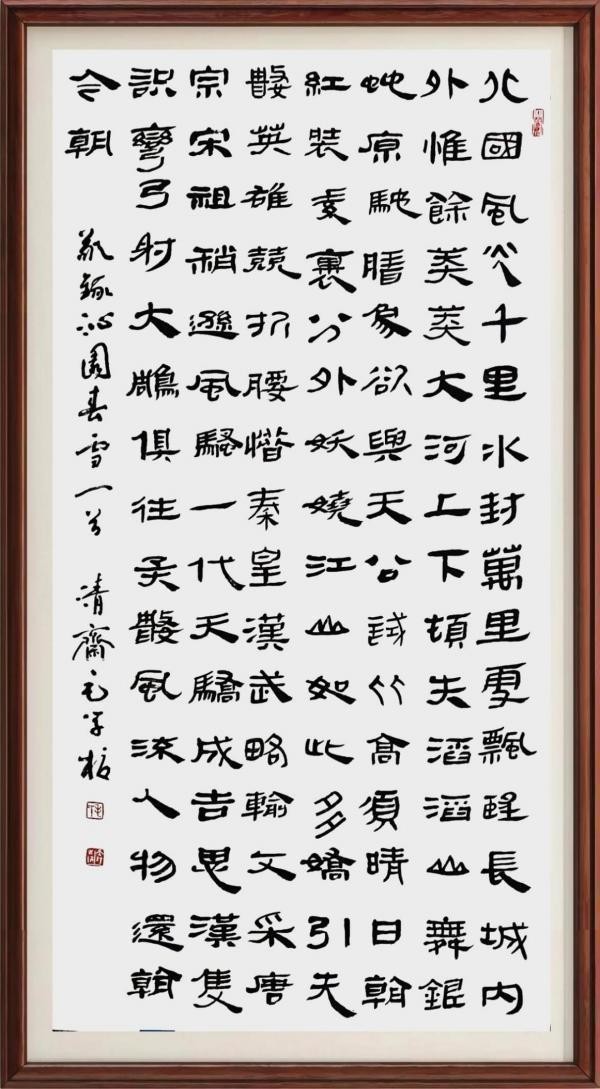 北國風光千里冰封萬里雪飄朢長城內
外惟餘莽莽大河上下頓失滔滔山舞銀
蛇原馳腊象欲與天公試比高須晴日看
紅裝素裹分外妖嬈江山如此多嬌引无
數英雄競折腰惜秦皇漢武略輸文采唐
宗宋祖稍遜風騷一代天驕成吉思漢隻
識彎弓射大鵰俱往矣數風流人物還看
今朝 敬錄沁園春雪一首 清齋毛